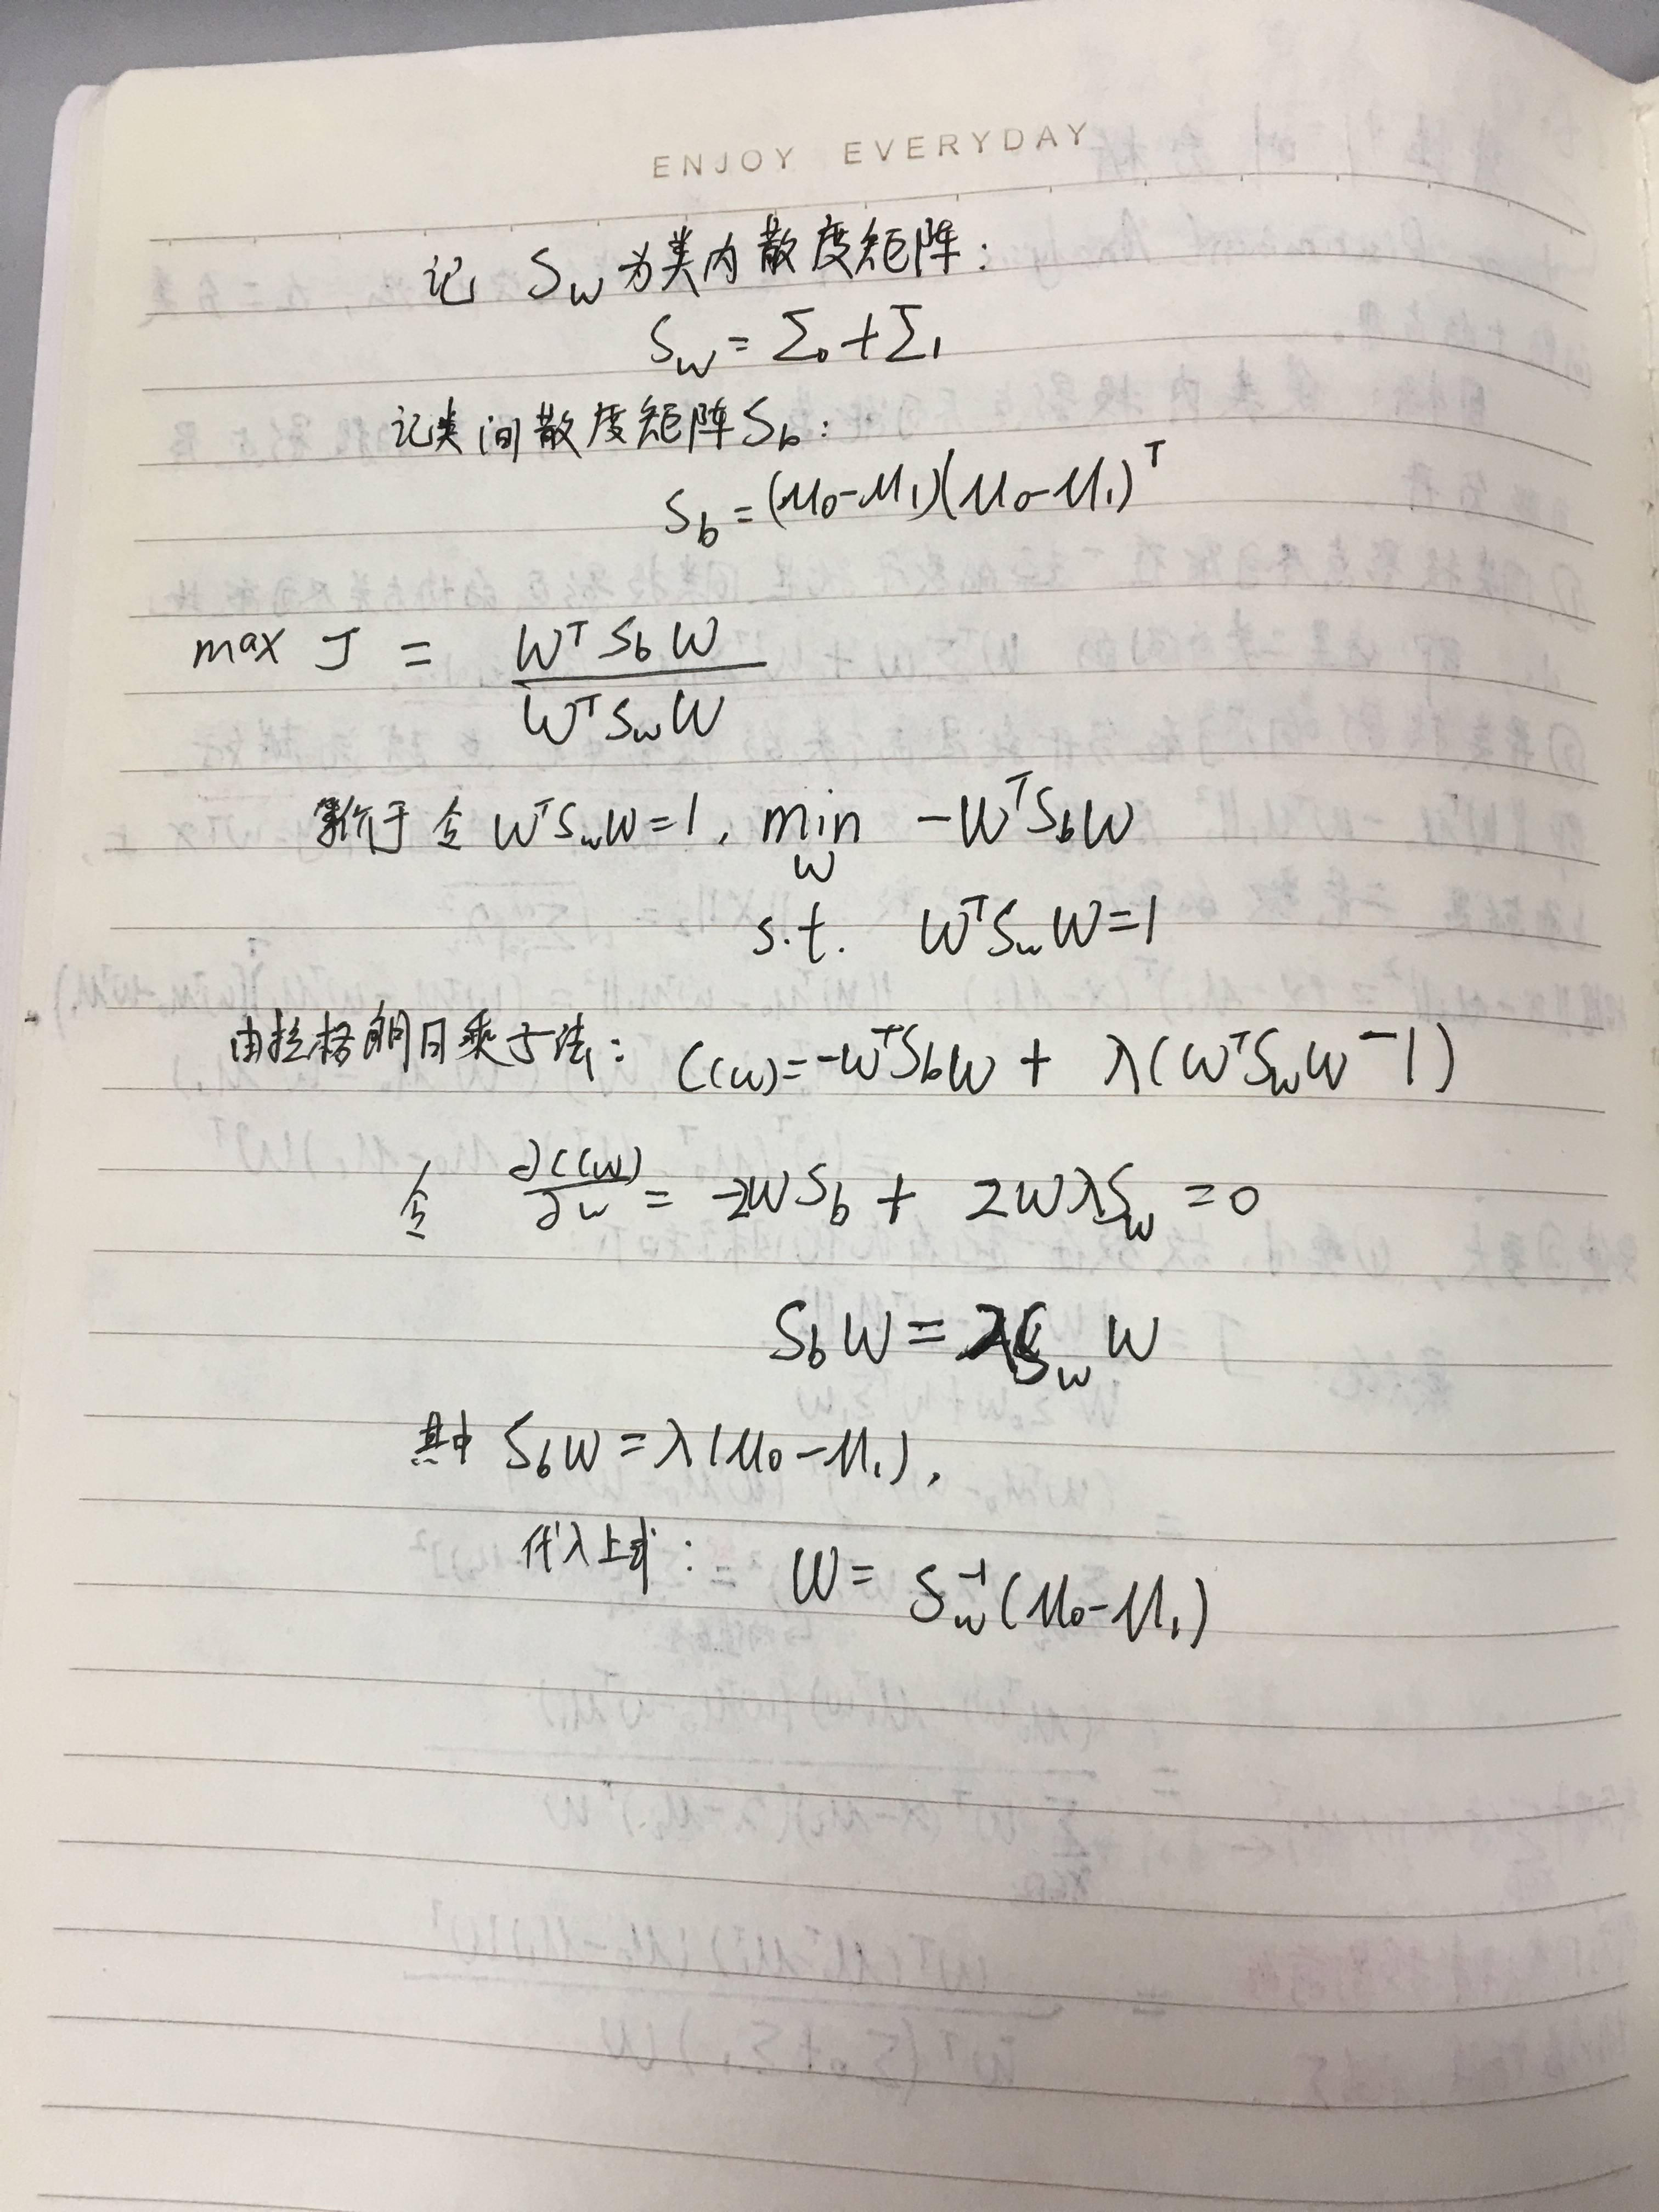 ENJOY EVERYDAY
记 Sw 为类内散度矩阵:
Sw = Σ₀+Σ₁
记类间散度矩阵Sb:
Sb = (μ₀-μ₁)(μ₀-μ₁)ᵀ
max J = WᵀSbW / WᵀSwW
等价于 令 WᵀSwW=1, min -WᵀSbW
W
s.t. WᵀSwW=1
由拉格朗日乘子法: C(w)=-wᵀSbw + λ(wᵀSww-1)
令 ∂C(w)/∂w = -2wSb + 2wλSw = 0
SbW = λSwW
其中 SbW = λ(μ₀-μ₁),
代入上式: W = Sw⁻¹(μ₀-μ₁)